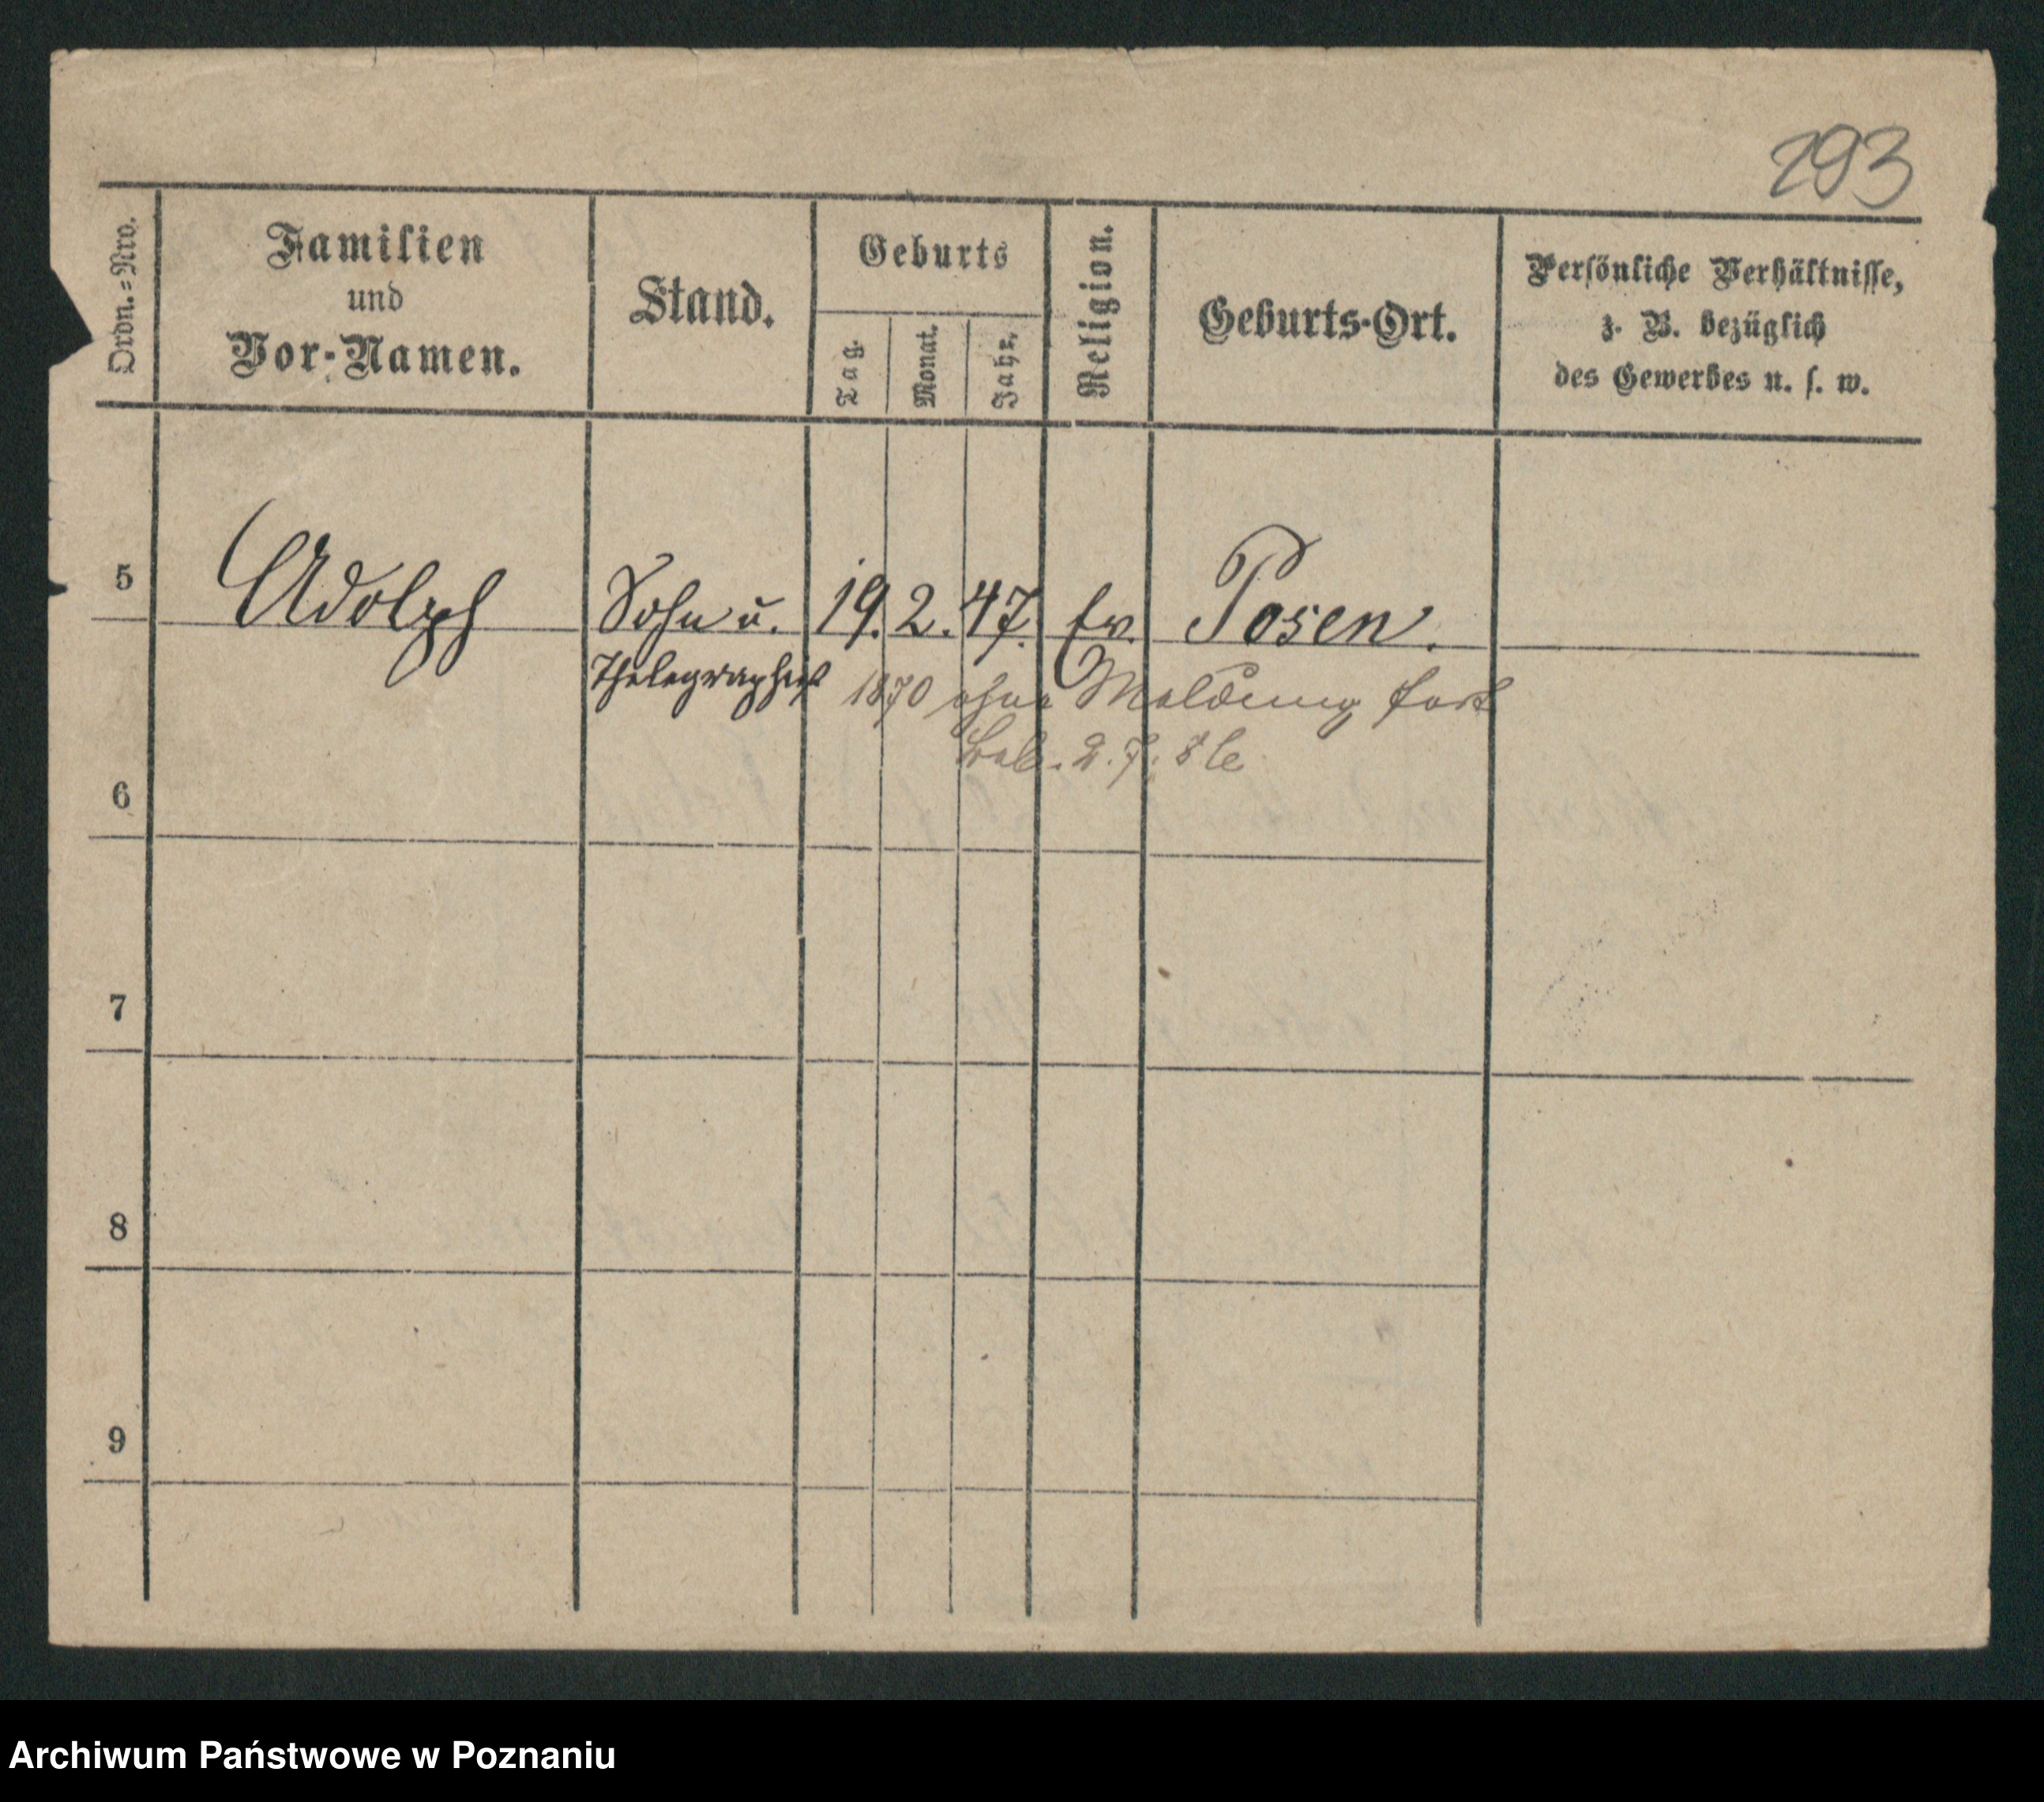 293
Ordn.=Nro.
Familien
und
Vor-Namen.
Stand.
Geburts
Tag.
Monat.
Jahr.
Religion.
Geburts-Ort.
Persönliche Verhältnisse,
z. B. bezüglich
des Gewerbes u. s. w.
5 Adolph Sohn u. 19. 2. 47. Ev. Posen.
Thelegraphist 1870 ohne Meldung fort
2. 7.
6
7
8
9
Archiwum Państwowe w Poznaniu